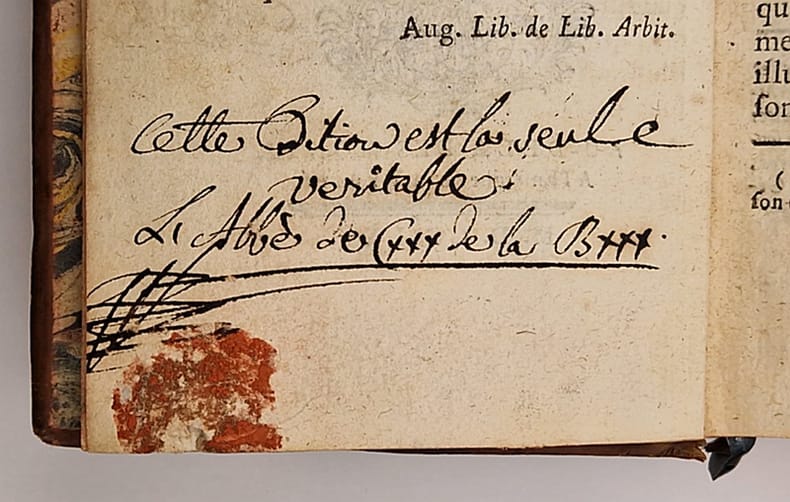 Aug. Lib. de Lib. Arbit.
Cette Edition est la seule
veritable.
L'Abbè de Cxxx de la Bxxx.
qu
me
illu
ſon
(
ſon